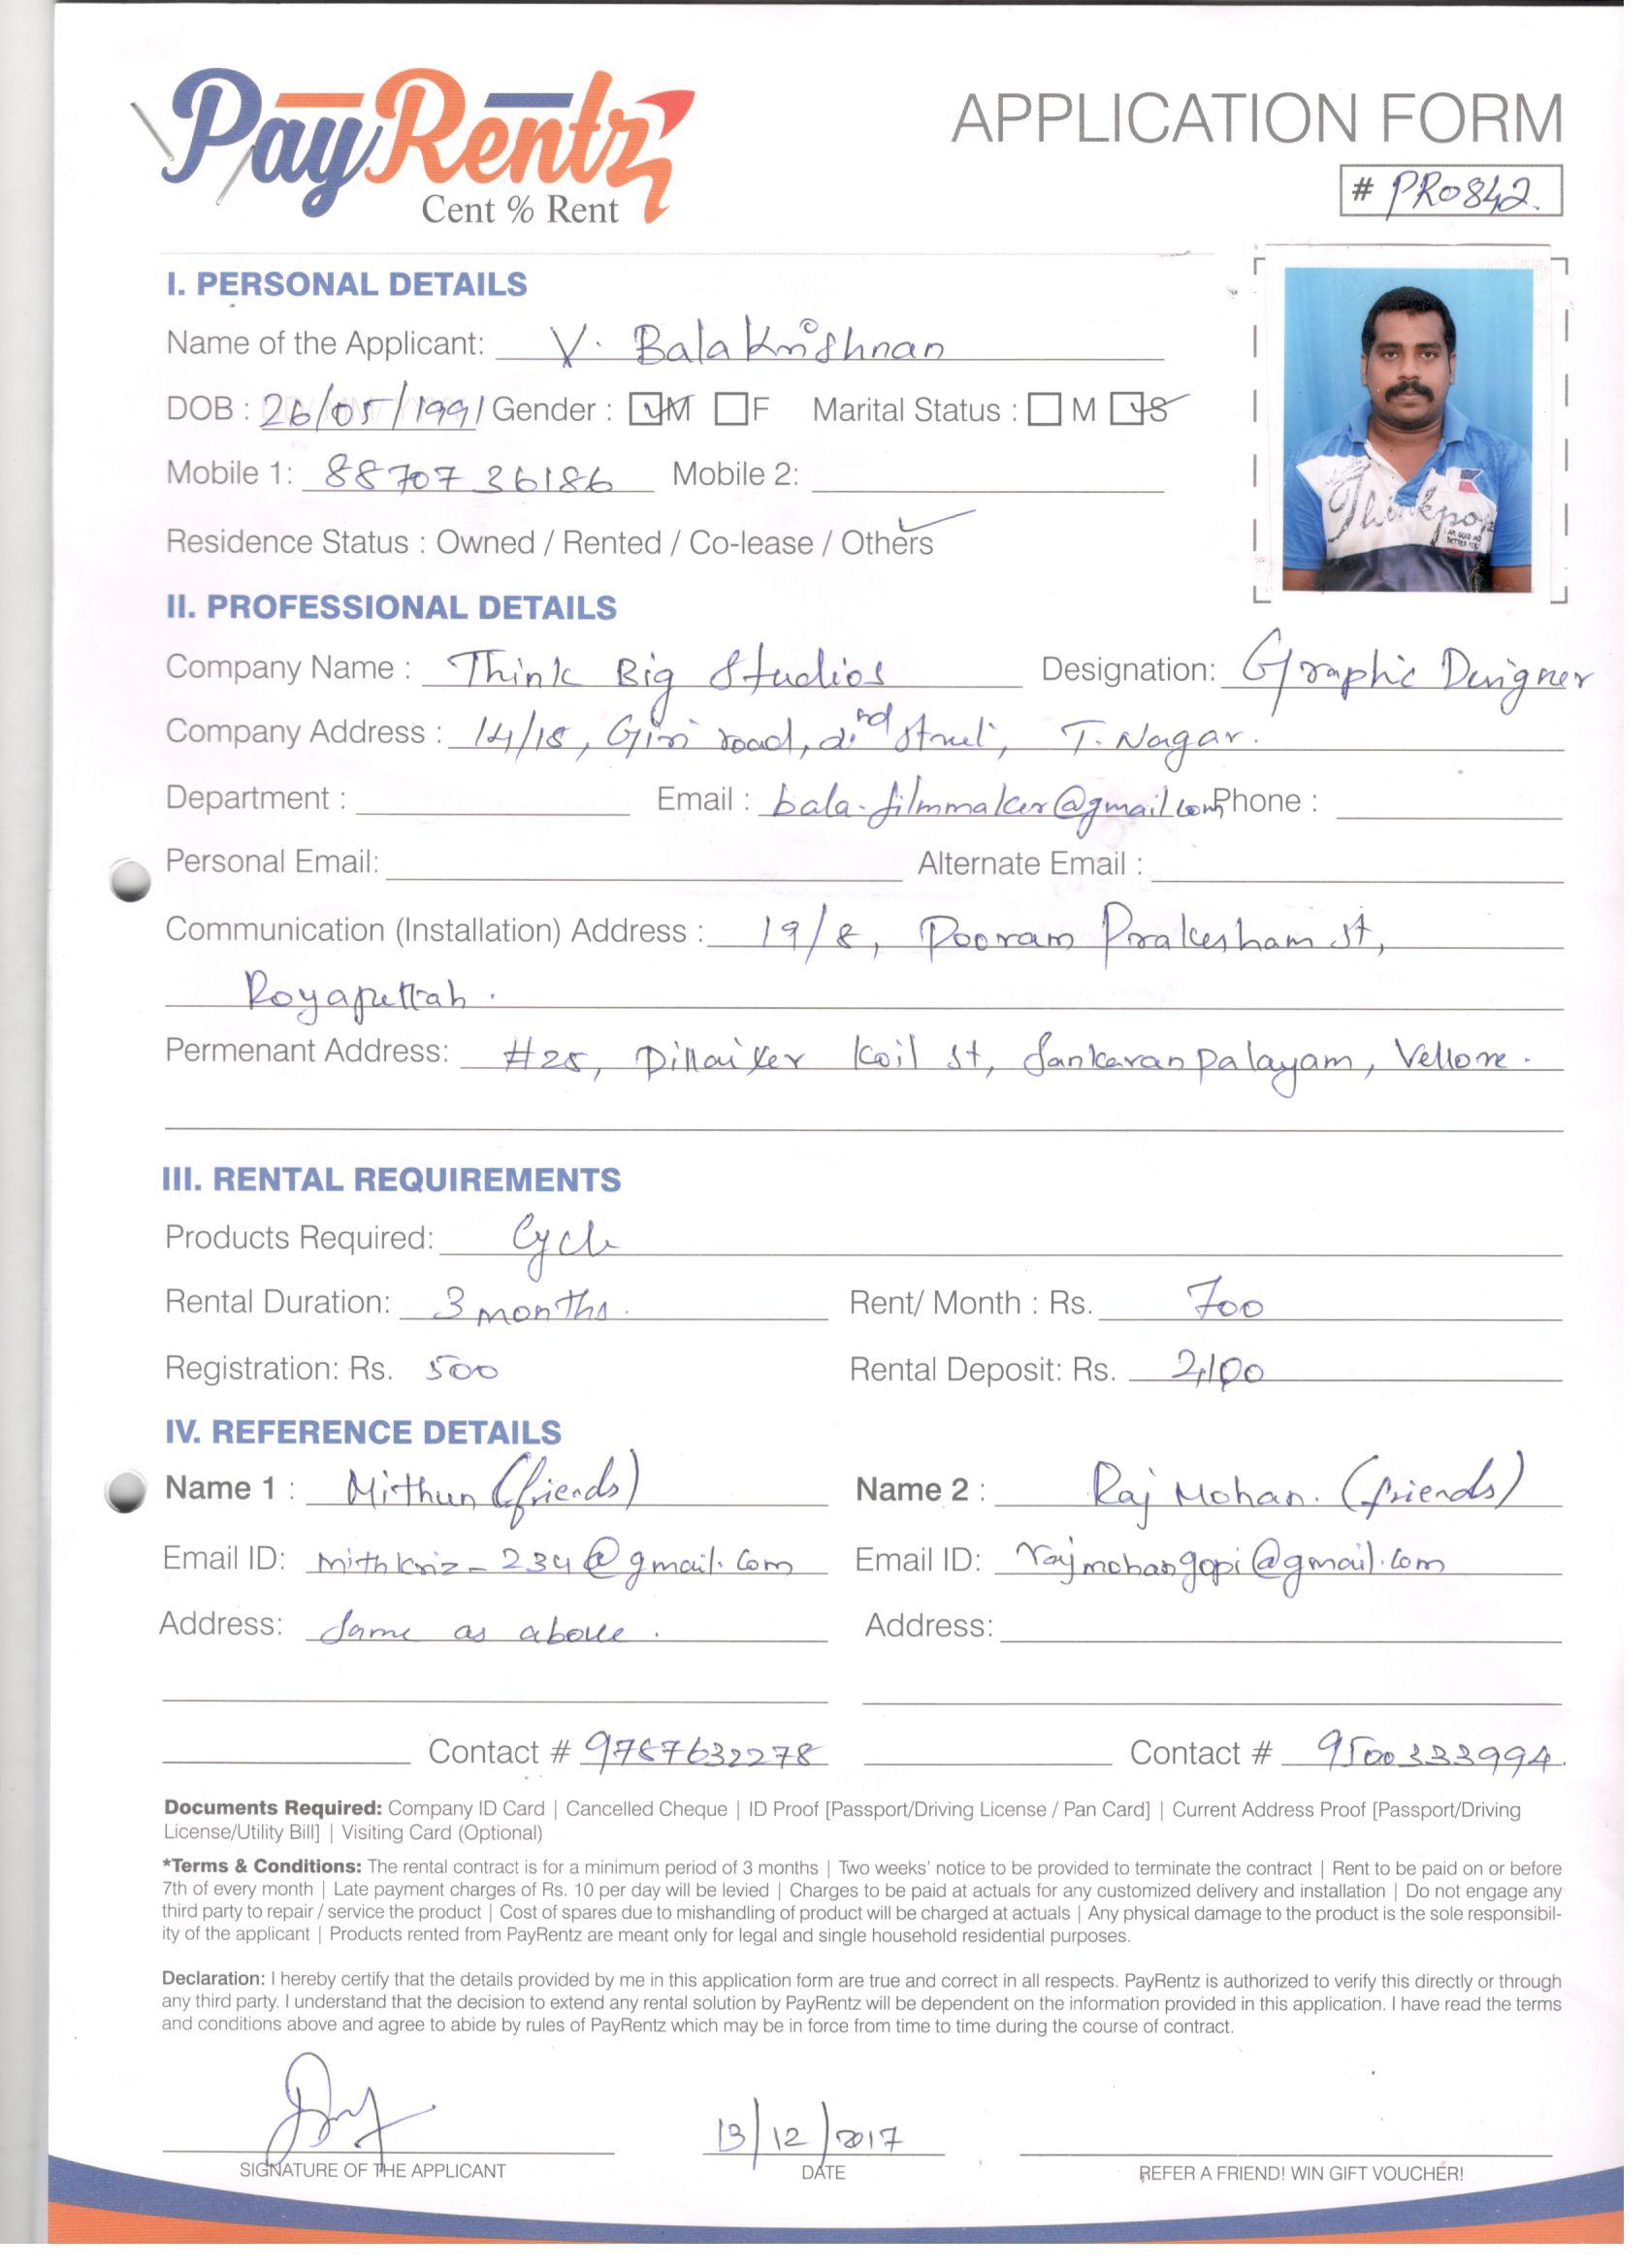 PayRentz
Cent % Rent
APPLICATION FORM
# PR0842.
I. PERSONAL DETAILS
Name of the Applicant: V. Balakrishnan
DOB : 26/05/1991 Gender : M F Marital Status : M S
Mobile 1: 88707 36186 Mobile 2:
Residence Status : Owned / Rented / Co-lease / Others
II. PROFESSIONAL DETAILS
Company Name : Think Big Studios Designation: Graphic Designer
Company Address : 14/18, Giri road, 2nd street, T. Nagar.
Department : Email : bala.filmmaker@gmail.com Phone :
Personal Email: Alternate Email :
Communication (Installation) Address : 19/8, Pooram Prakesham st,
Royapettah.
Permenant Address: #28, Pillaiyer Koil st, Sankaranpalayam, Vellore.
III. RENTAL REQUIREMENTS
Products Required: Cycle
Rental Duration: 3 months. Rent/ Month : Rs. 700
Registration: Rs. 500 Rental Deposit: Rs. 2,100
IV. REFERENCE DETAILS
Name 1 : Mithun (friends) Name 2 : Raj Mohan. (friends)
Email ID: mithkriz_234@gmail.com Email ID: rajmohangopi@gmail.com
Address: Same as above. Address:
Contact # 9787632278 Contact # 9500333994.
Documents Required: Company ID Card | Cancelled Cheque | ID Proof [Passport/Driving License / Pan Card] | Current Address Proof [Passport/Driving
License/Utility Bill] | Visiting Card (Optional)
*Terms & Conditions: The rental contract is for a minimum period of 3 months | Two weeks' notice to be provided to terminate the contract | Rent to be paid on or before
7th of every month | Late payment charges of Rs. 10 per day will be levied | Charges to be paid at actuals for any customized delivery and installation | Do not engage any
third party to repair / service the product | Cost of spares due to mishandling of product will be charged at actuals | Any physical damage to the product is the sole responsibil-
ity of the applicant | Products rented from PayRentz are meant only for legal and single household residential purposes.
Declaration: I hereby certify that the details provided by me in this application form are true and correct in all respects. PayRentz is authorized to verify this directly or through
any third party. I understand that the decision to extend any rental solution by PayRentz will be dependent on the information provided in this application. I have read the terms
and conditions above and agree to abide by rules of PayRentz which may be in force from time to time during the course of contract.
13/12/2017
SIGNATURE OF THE APPLICANT DATE REFER A FRIEND! WIN GIFT VOUCHER!